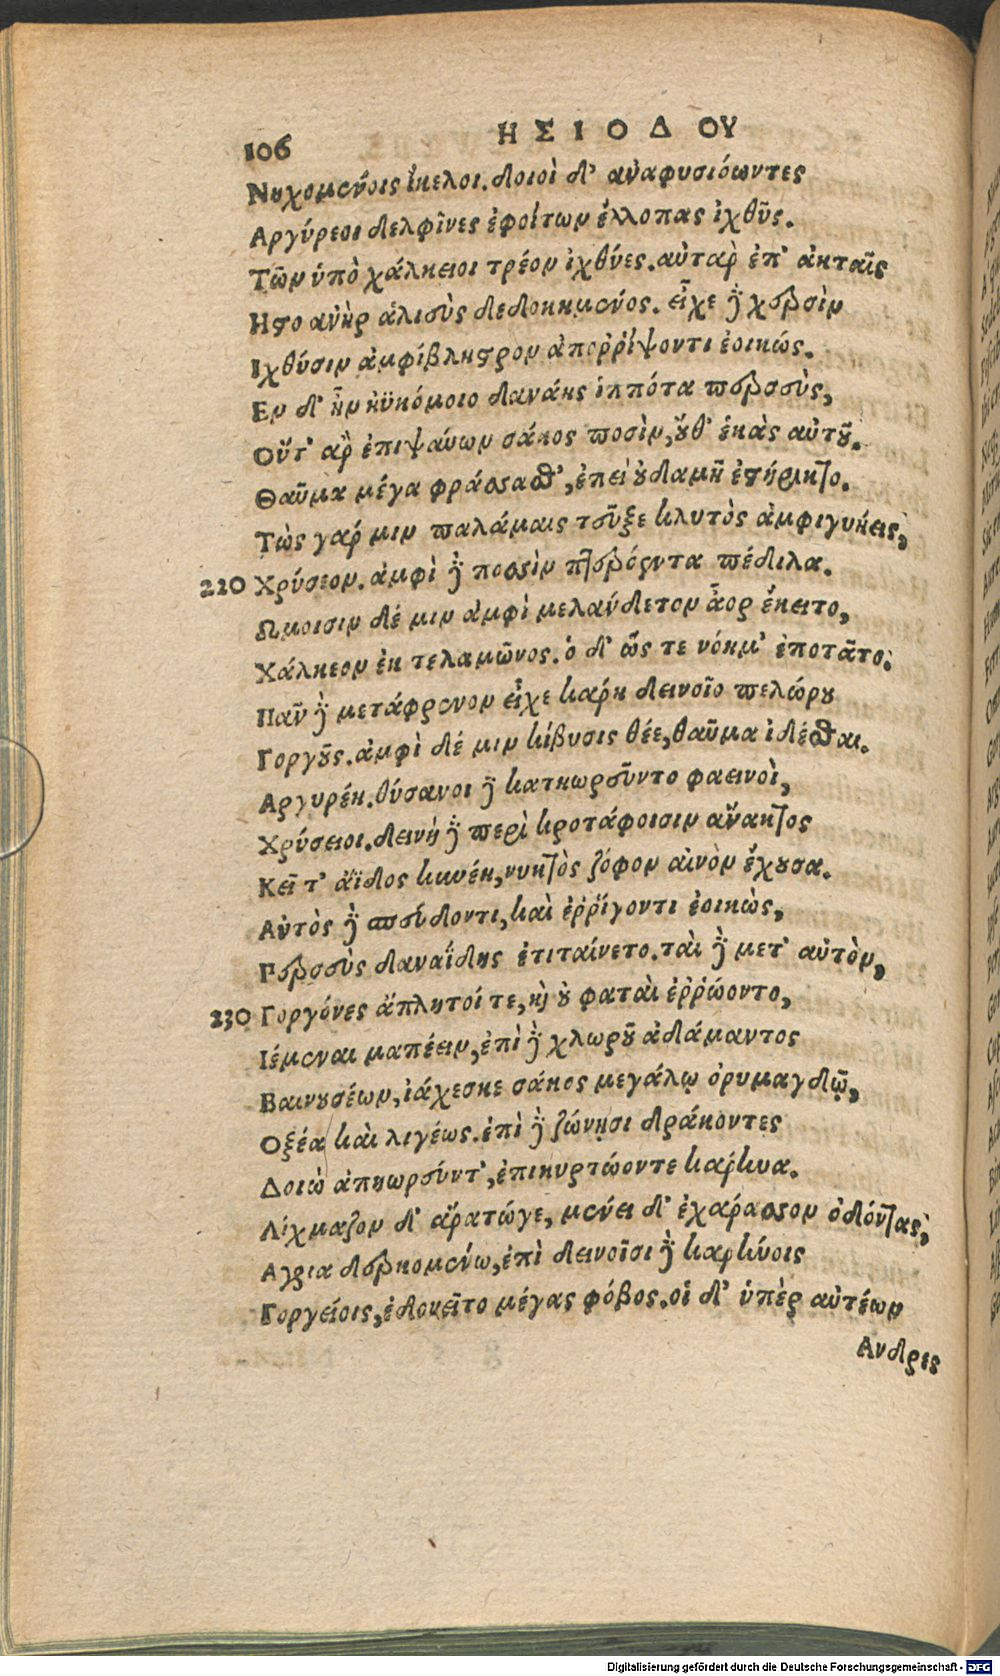 106
ΗΣΙΟΔΟΥ
Νηχομένοις ἴκελοι. δοιοὶ δ' αναφυσιόωντες
Αργύρεοι δελφῖνες ἐφοίτων ἔλλοπας ἰχθῦς.
Τῶν ὑπὸ χάλκειοι τρέον ἰχθύες. αὐτὰρ ἐπ' ἀκταῖς
Ηστο ανὴρ ἁλιεὺς δεδοκημένος. εἶχε δὲ χερσὶν
Ιχθύσιν ἀμφίβληστρον ἀποῤῥίψοντι ἐοικώς.
Εν δ' ἦν ἠϋκόμοιο δανάης ἱππότα περσεὺς,
Οὔτ' ἂρ ἐπιψαύων σάκος ποσὶν, οὔθ' ἑκὰς αὐτοῦ.
Θαῦμα μέγα φράσσασθ', ἐπεὶ οὐδαμῆ ἐστήρικτο.
Τὼς γάρ μιν παλάμαις τεῦξε κλυτὸς ἀμφιγυήεις,
220 Χρύσεον. ἀμφὶ δὲ ποσσὶν πτερόεντα πέδιλα.
Ωμοισιν δέ μιν ἀμφὶ μελάνδετον ἆορ ἔκειτο,
Χάλκεον ἐκ τελαμῶνος. ὁ δ' ὥς τε νόημ' ἐποτᾶτο.
Πᾶν δὲ μετάφρενον εἶχε κάρη δεινοῖο πελώρου
Γοργοῦς. ἀμφὶ δέ μιν κίβυσις θέε, θαῦμα ἰδέσθαι.
Αργυρέη. θύσανοι δὲ κατηωρεῦντο φαεινοὶ,
Χρύσειοι. δεινὴ δὲ περὶ κροτάφοισιν ἄνακτος
Κεῖτ' ἄϊδος κυνέη, νυκτὸς ζόφον αἰνὸν ἔχουσα.
Αὐτὸς δὲ σπεύδοντι, καὶ ἐῤῥίγοντι ἐοικὼς,
Περσεὺς δαναΐδης ἐτιταίνετο. ταὶ δὲ μετ' αὐτὸν,
230 Γοργόνες ἄπλητοί τε, καὶ οὐ φαταὶ ἐῤῥώοντο,
Ιέμεναι μαπέειν, ἐπὶ δὲ χλωροῦ ἀδάμαντος
Βαινουσέων, ἰάχεσκε σάκος μεγάλῳ ὀρυμαγδῷ,
Οξέα καὶ λιγέως. ἐπὶ δὲ ζώνησι δράκοντες
Δοιὼ ἀπηωρεύντ', ἐπικυρτώοντε κάρκυα.
Λίχμαζον δ' ἄρατώγε, μένει δ' ἐχάρασσον ὀδόντας,
Αγρια δερκομένω, ἐπὶ δεινοῖσι δὲ καρκύοις
Γοργείοις, ἐδονεῖτο μέγας φόβος. οἱ δ' ὑπὲρ αὐτέων
Ανδρες
Digitalisierung gefördert durch die Deutsche Forschungsgemeinschaft - DFG